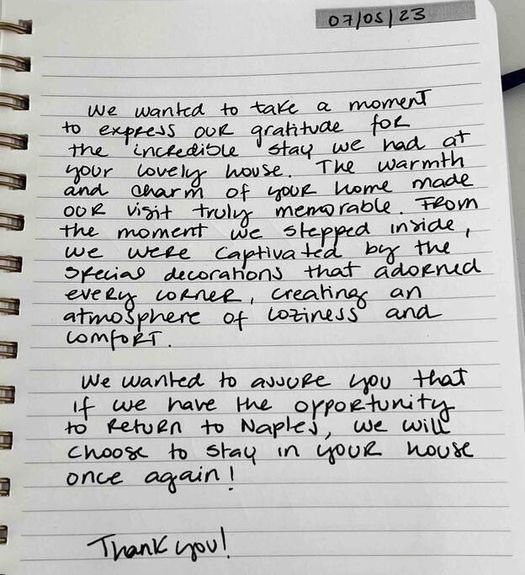 07/05/23
We wanted to take a moment
to express our gratitude for
the incredible stay we had at
your lovely house. The warmth
and charm of your home made
our visit truly memorable. From
the moment we stepped inside,
we were captivated by the
special decorations that adorned
every corner, creating an
atmosphere of coziness and
comfort.
We wanted to assure you that
if we have the opportunity
to return to Naples, we will
choose to stay in your house
once again!
Thank you!